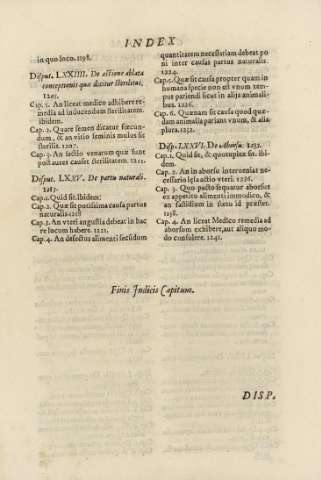 INDEX
in quo loco. 1198.
Disput. LXXIIII. De actione ablata
conceptionis quæ dicitur sterilitas.
1201.
Cap. 1. An liceat medico adhibere re-
media ad inducendam sterilitatem.
ibidem.
Cap. 2. Quare semen dicatur fœcun-
dum, & an vitio seminis mulier sit
sterilis. 1207.
Cap. 3. An sectio venarum quæ sunt
post aures causet sterilitatem. 1211.
Disput. LXXV. De partu naturali.
1217.
Cap. 1. Quid sit. Ibidem.
Cap. 2. Quæ sit potissima causa partus
naturalis. 1218
Cap. 3. An vteri angustia debeat in hac
re locum habere. 1221.
Cap. 4. An defectus alimenti secũdum
quantitatem necessariam debeat po
ni inter causas partus naturalis.
1224.
Cap. 5. Quæ sit causa propter quam in
humana specie non est vnum tem-
pus pariendi sicut in alijs animali-
bus. 1226.
Cap. 6. Quænam sit causa quod quæ-
dam animalia pariant vnum, & alia
plura. 1232.
Disp. LXXVI. De Aborsu. 1235.
Cap. 1. Quid sit, & quotuplex sit. Ibi-
dem.
Cap. 2. An in aborsu interueniat ne-
cessario læsa actio vteri. 1236.
Cap. 3. Quo pacto sequatur aborsus
ex appetitu alimenti immodico, &
an fastidium in fœtu id præstet.
1238.
Cap. 4. An liceat Medico remedia ad
aborsum exhibere, aut aliquo mo-
do consulere. 1241.
Finis Indicis Capitum.
DISP.